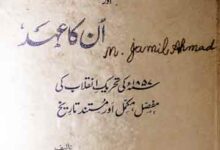 اور
اُن کا عہد
M. Jamil Ahmad
۱۸۵۷ء کی تحریک انقلاب کی
مفصل، مکمل اور مستند تاریخ